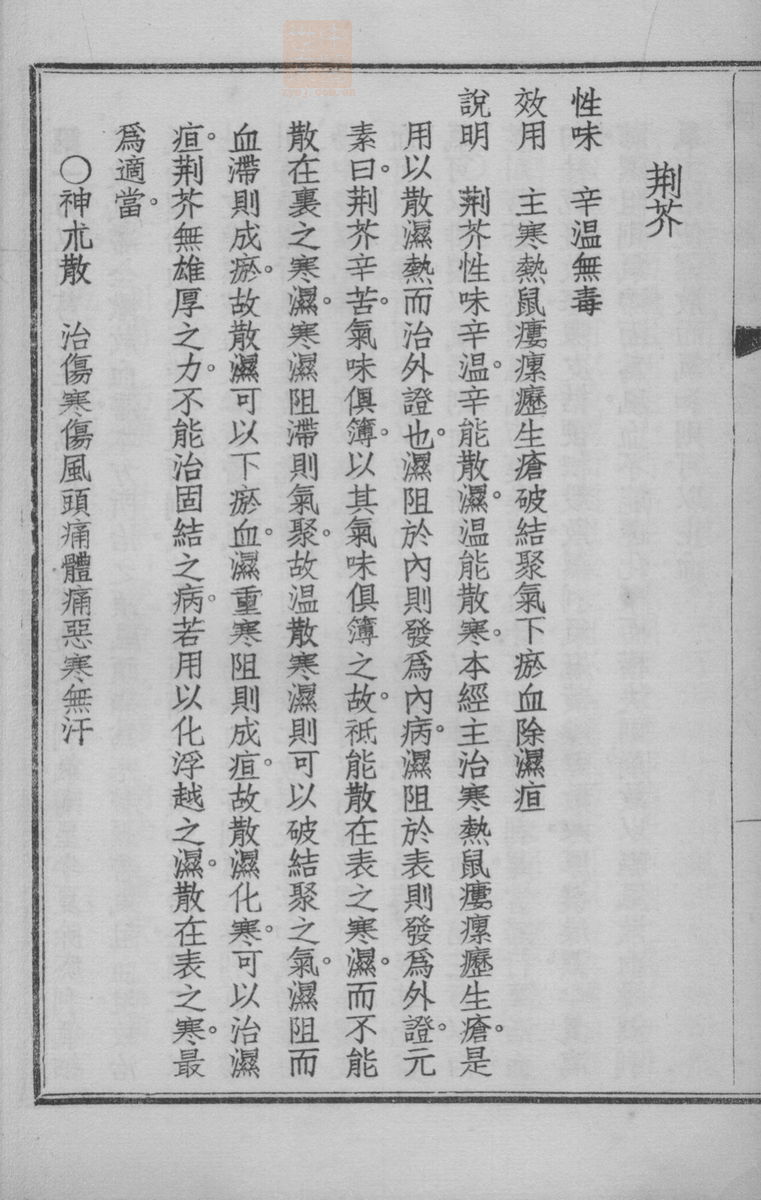 荆芥
性味　辛温無毒
效用　主寒熱鼠瘻瘰癧生瘡破結聚氣下瘀血除濕疸
說明　荆芥性味辛温。辛能散濕。温能散寒。本經主治寒熱鼠瘻瘰癧生瘡。是
用以散濕熱而治外證也。濕阻於內則發爲內病。濕阻於表則發爲外證。元
素曰。荆芥辛苦。氣味俱簿。以其氣味俱簿之故。祗能散在表之寒濕。而不能
散在裏之寒濕。寒濕阻滯則氣聚。故温散寒濕則可以破結聚之氣。濕阻而
血滯則成瘀。故散濕可以下瘀血。濕重寒阻則成疸。故散濕化寒。可以治濕
疸。荆芥無雄厚之力。不能治固結之病。若用以化浮越之濕。散在表之寒。最
爲適當。
〇神朮散　治傷寒傷風頭痛體痛惡寒無汗